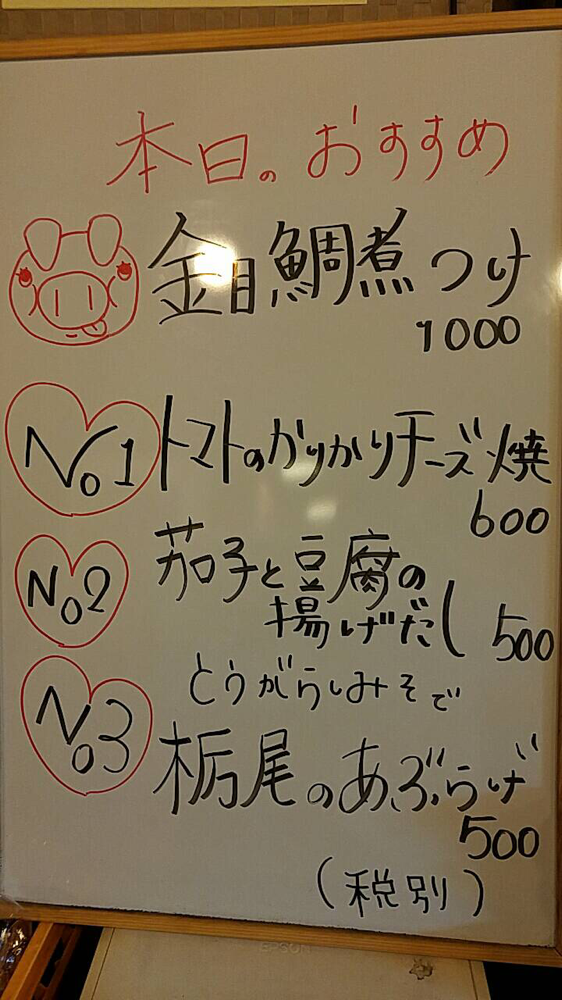 本日のおすすめ
金目鯛煮つけ
1000
No1 トマトのかりかりチーズ焼
600
No2 茄子と豆腐の
揚げだし 500
とうがらしみそで
No3 栃尾のあぶらげ
500
(税別)
EPSON